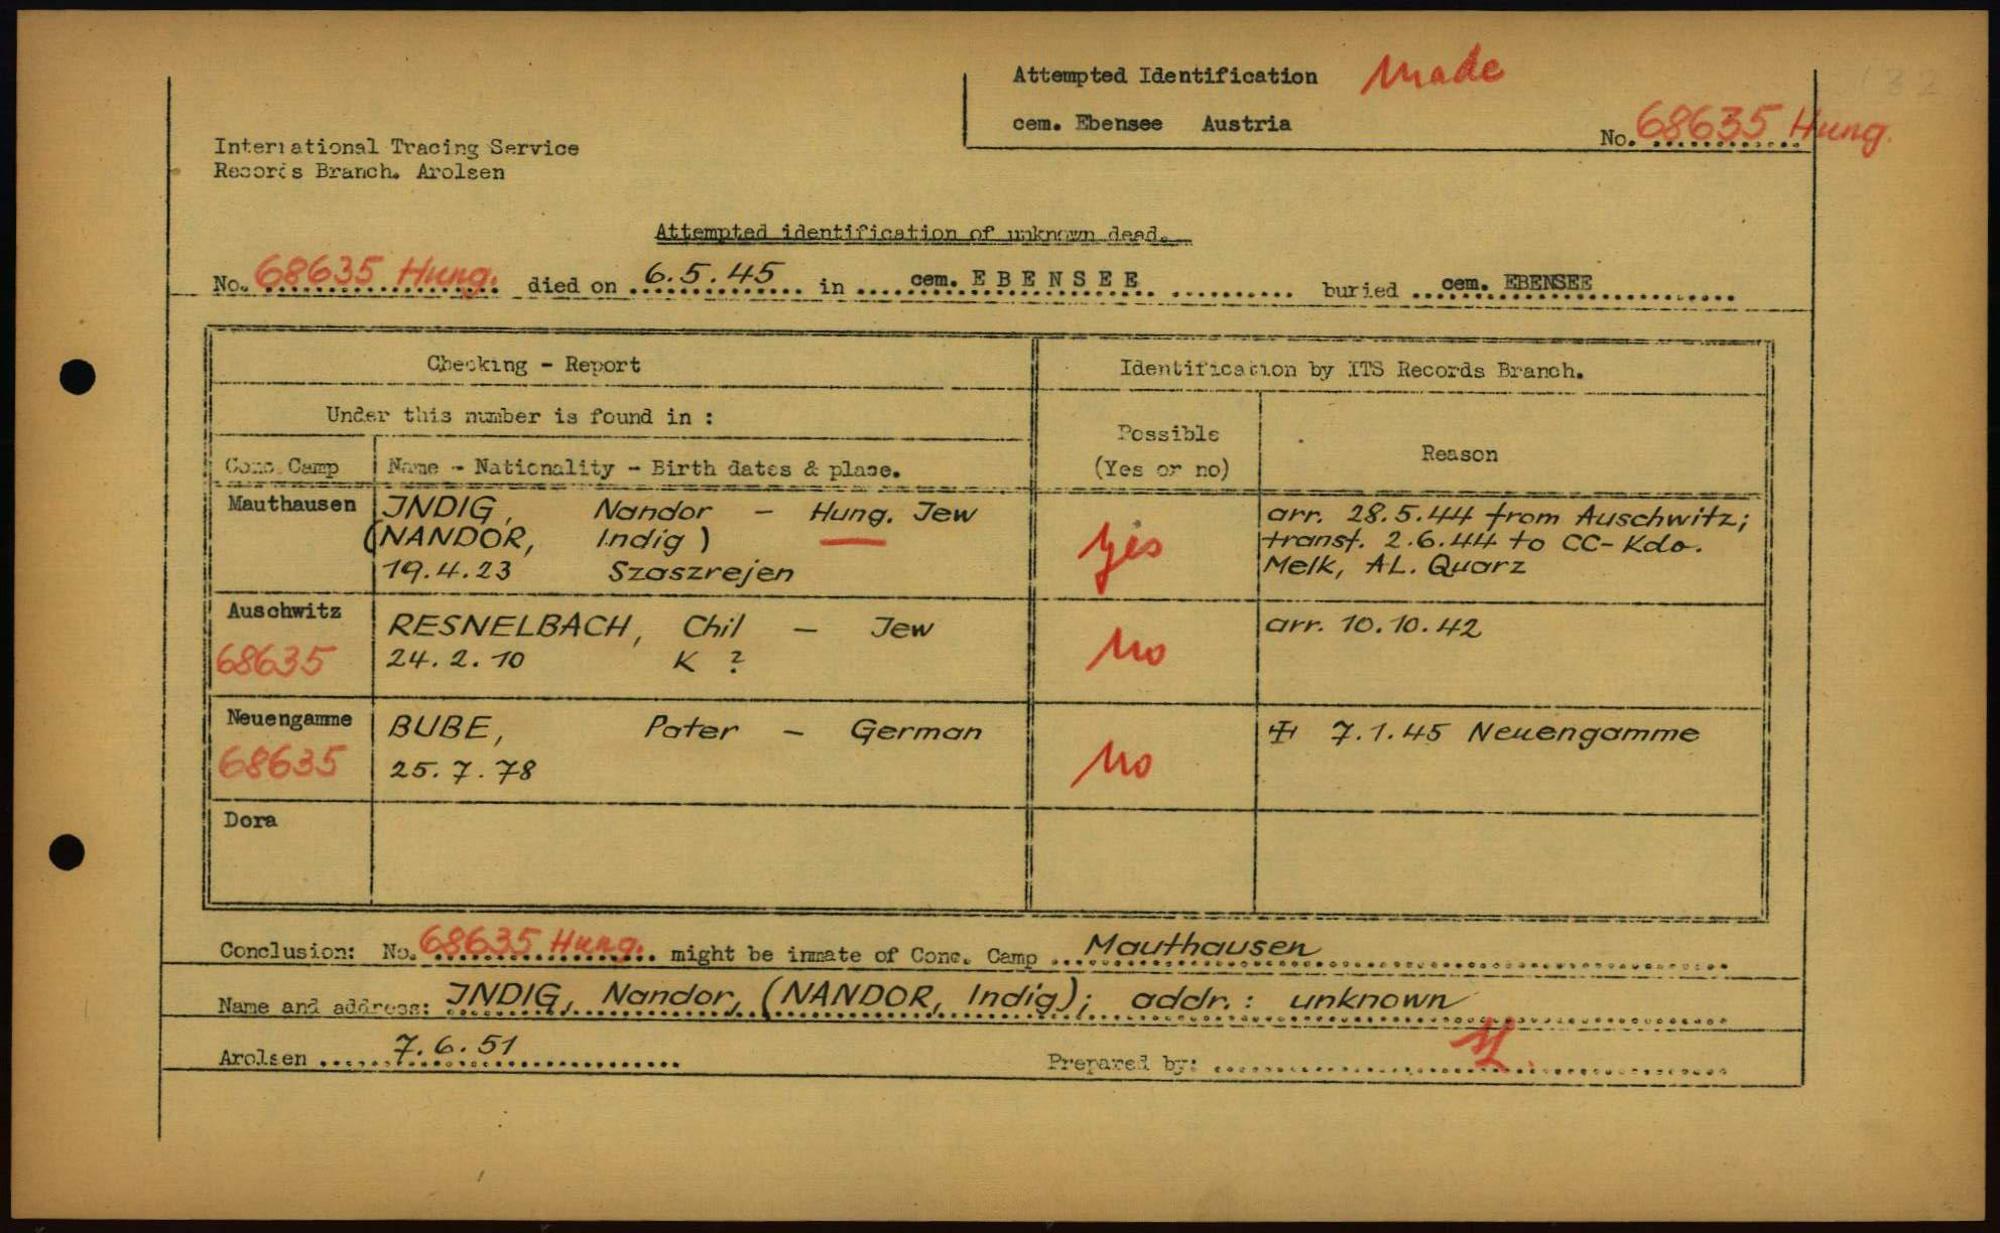 Attempted Identification made
cem. Ebensee Austria
No. 68635 Hung.
International Tracing Service
Records Branch. Arolsen
Attempted identification of unknown dead.
No. 68635 Hung. died on 6.5.45 in cem. EBENSEE buried cem. EBENSEE
Checking - Report
Identification by ITS Records Branch.
Under this number is found in :
Conc. Camp
Name - Nationality - Birth dates & place.
Possible
(Yes or no)
Reason
Mauthausen
INDIG, Nandor - Hung. Jew
(NANDOR, Indig)
19.4.23 Szaszrejen
yes
arr. 28.5.44 from Auschwitz;
transf. 2.6.44 to CC-Kdo.
Melk, AL. Quarz
Auschwitz
68635
RESNELBACH, Chil - Jew
24.2.10 K ?
no
arr. 10.10.42
Neuengamme
68635
BUBE, Pater - German
25.7.78
no
7.1.45 Neuengamme
Dora
Conclusion: No. 68635 Hung. might be inmate of Conc. Camp Mauthausen
Name and address: INDIG, Nandor, (NANDOR, Indig); addr.: unknown
Arolsen 7.6.51
Prepared by: